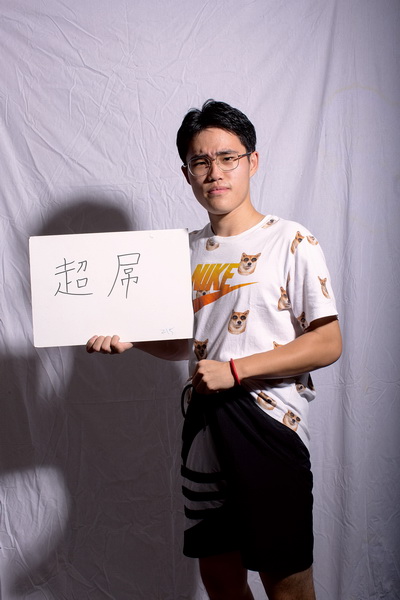 超屌
NIKE